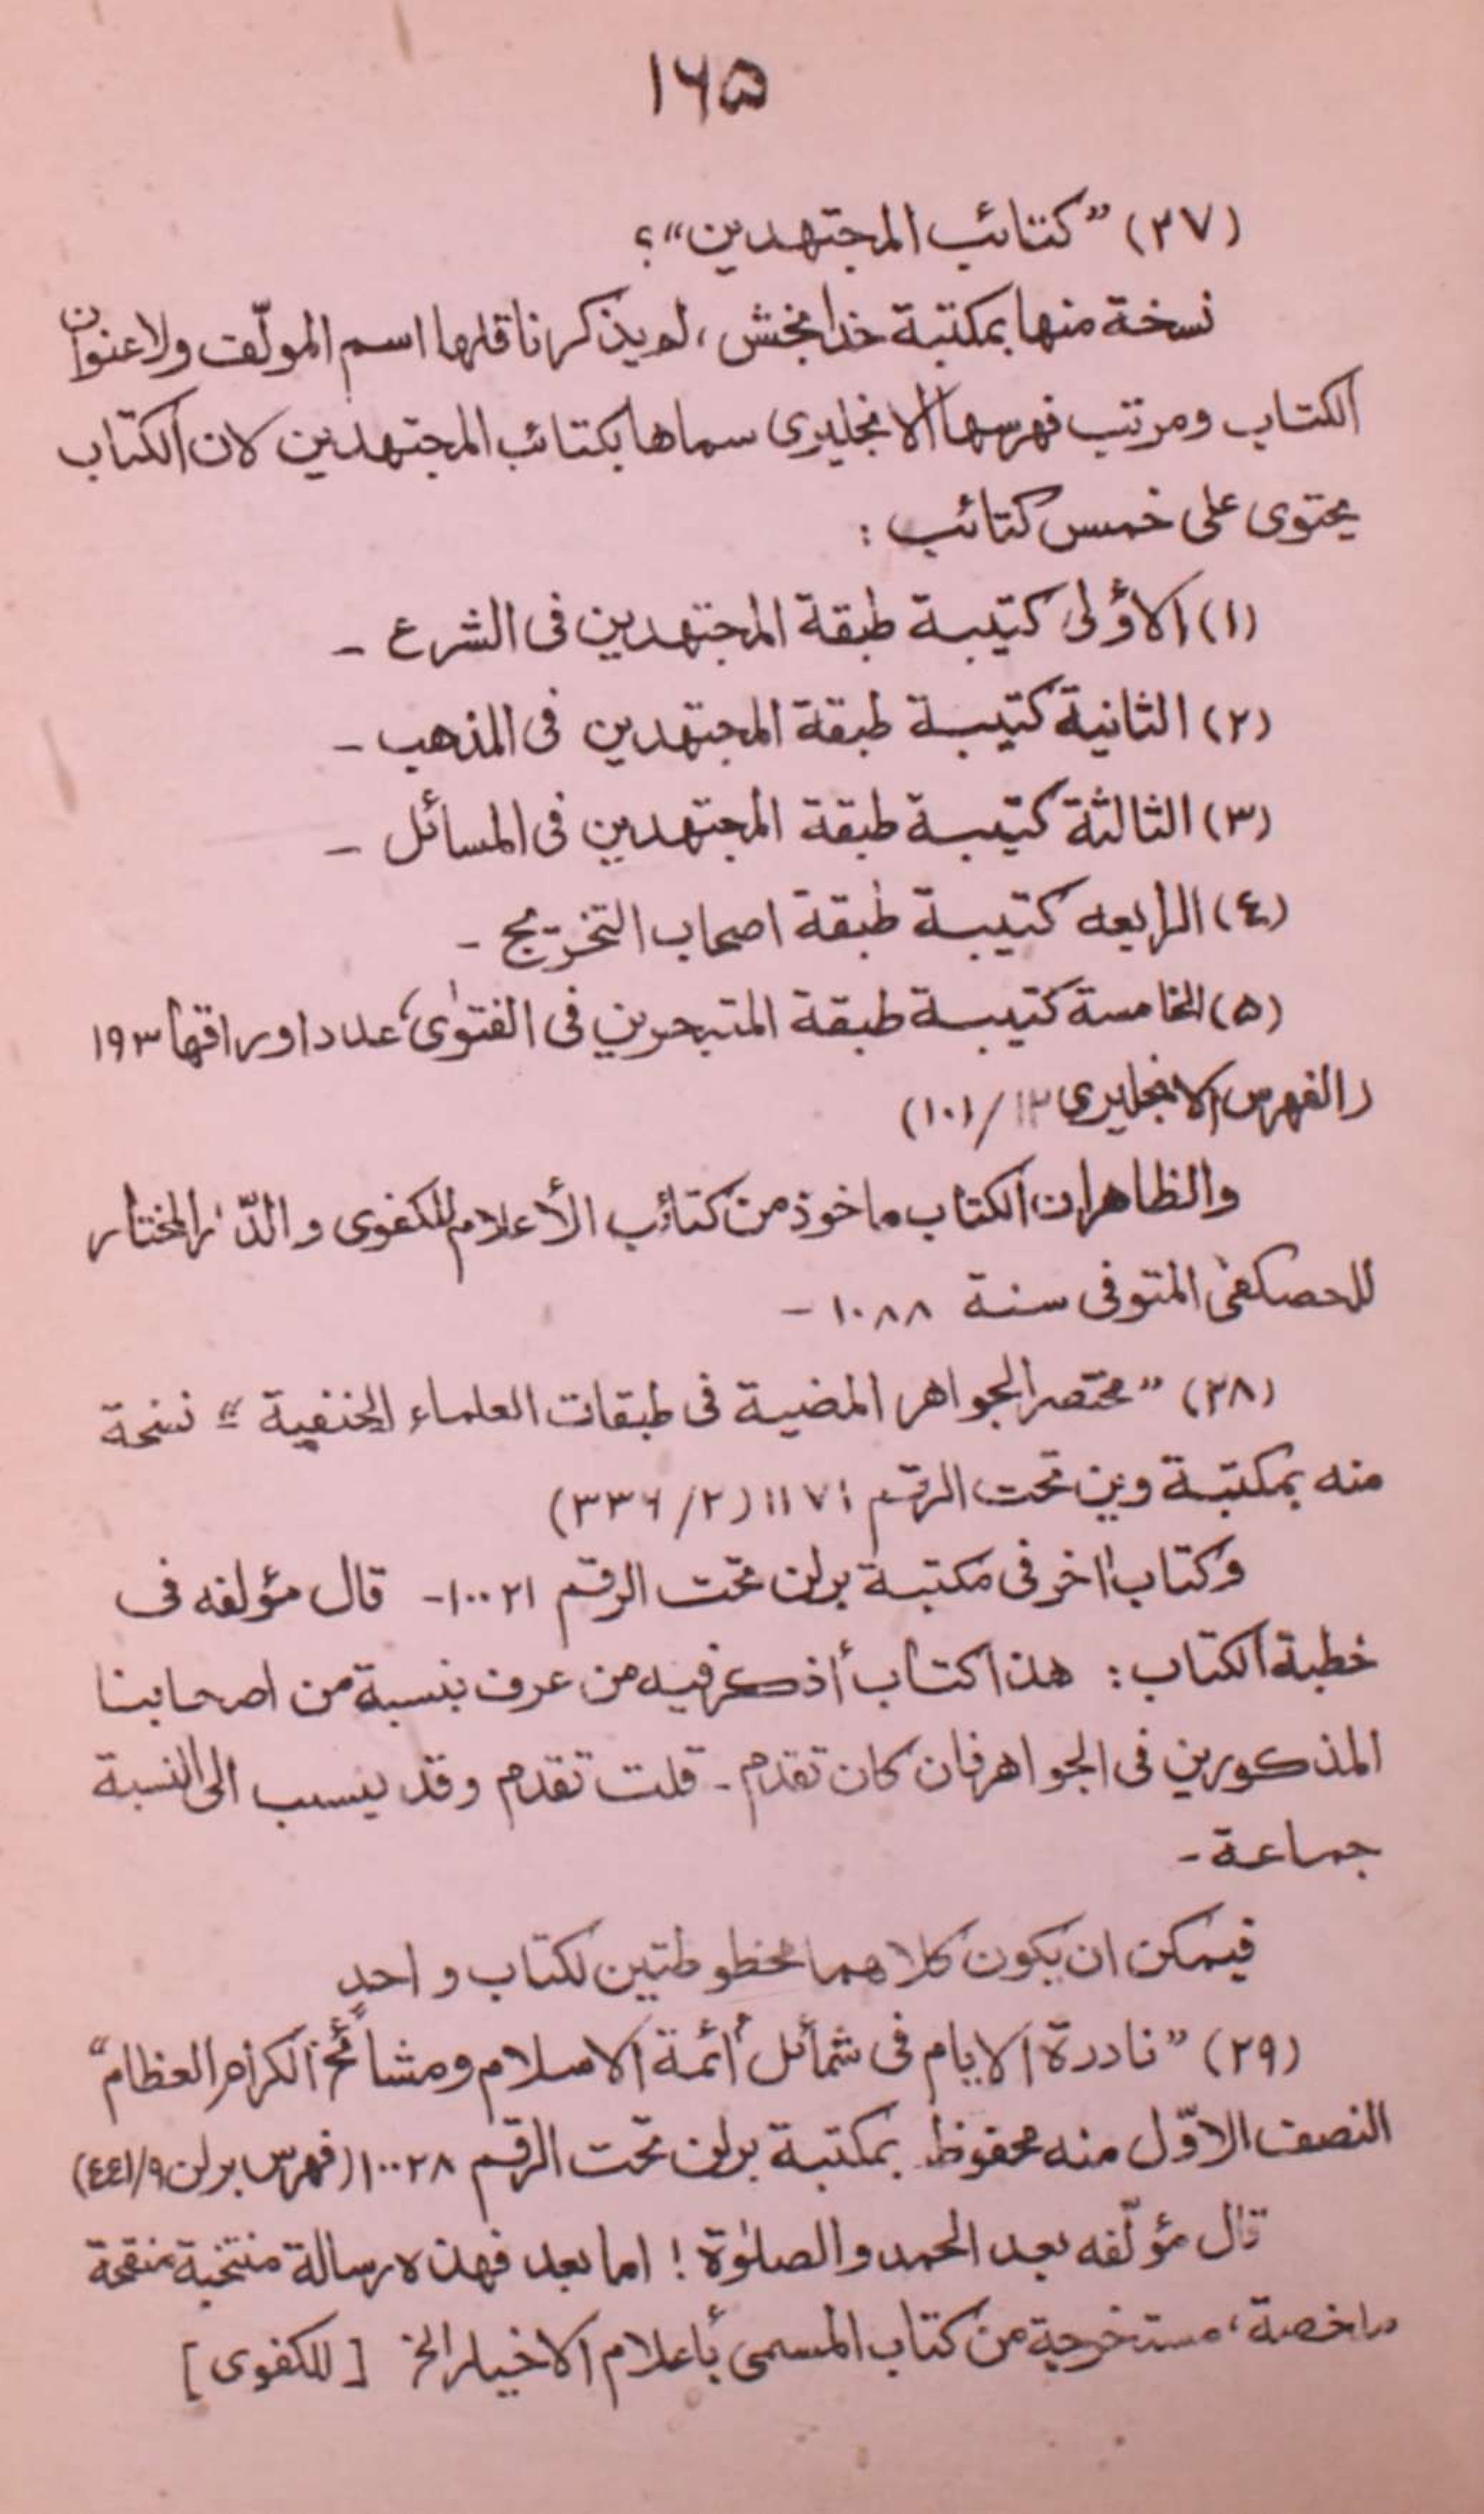 ١٦٥
(٢٧) ”كتائب المجتهدين“؟
نسخة منها بمكتبة خدا بخش، لم يذكر ناقلها اسم المولّف ولا عنوان
الكتاب ومرتب فهرسها الانجليزى سماها بكتائب المجتهدين لان الكتاب
يحتوى على خمس كتائب :
(١) الأولى كتيبة طبقة المجتهدين فى الشرع -
(٢) الثانية كتيبة طبقة المجتهدين فى المذهب -
(٣) الثالثة كتيبة طبقة المجتهدين فى المسائل -
(٤) الرابعه كتيبة طبقة اصحاب التخريج -
(٥) الخامسة كتيبة طبقة المتبحرين فى الفتوىٰ، عدد اوراقها ١٩٣
(الفهرس الانجليزى ١٢/١٠١)
والظاهر ان الكتاب ماخوذ من كتائب الأعلام للكفوى والدّر المختار
للحصكفى المتوفى سنة ١٠٨٨ -
(٢٨) ”مختصر الجواهر المضية فى طبقات العلماء الحنفية“ نسخة
منه بمكتبة وين تحت الرقم ١١٧١ (٢/٣٣٦)
وكتاب اٰخر فى مكتبة برلن تحت الرقم ١٠٠٢١ - قال مؤلفه فى
خطبة الكتاب : هذا كتاب أذكر فيه من عرف بنسبة من اصحابنا
المذكورين فى الجواهر فان كان تقدم - قلت تقدم وقد ينسب الى النسبة
جماعة -
فيمكن ان يكون كلاهما مخطوطتين لكتاب واحدٍ
(٢٩) ”نادرة الايام فى شمائل أئمة الاسلام ومشائخ الكرام العظام“
النصف الاوّل منه محفوظ بمكتبة برلن تحت الرقم ١٠٠٢٨ (فهرس برلن ٩/٤٤١)
قال مؤلّفه بعد الحمد والصلوٰة ! اما بعد فهذه رسالة منتخبة منقحة
ملخصة، مستخرجة من كتاب المسمى بأعلام الاخيار الخ [للكفوى]